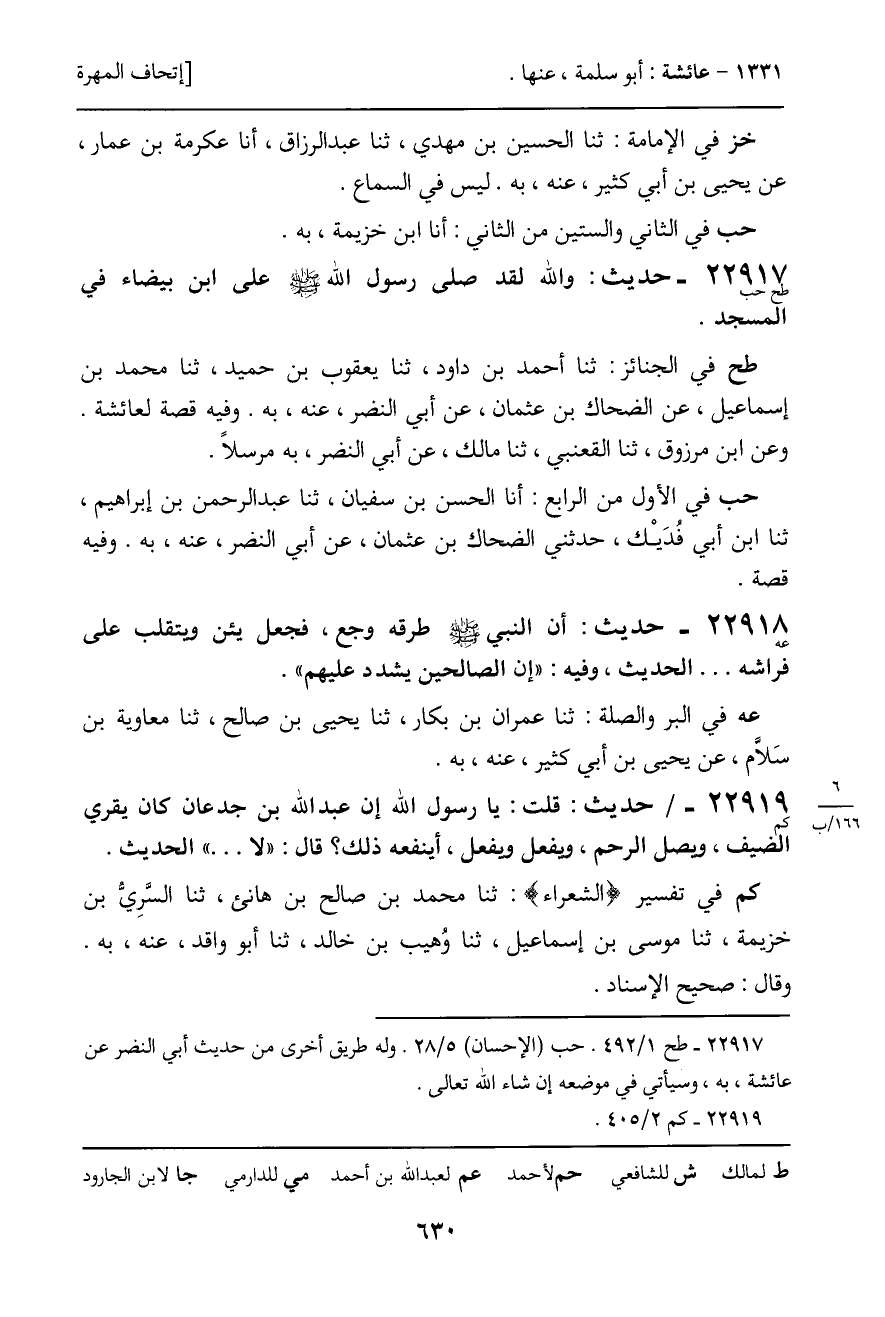 ١٣٣١ - عائشة : أبو سلمة ، عنها .
[إتحاف المهرة
خز في الإمامة : ثنا الحسين بن مهدي ، ثنا عبدالرزاق ، أنا عكرمة بن عمار ،
عن يحيى بن أبي كثير ، عنه ، به . ليس في السماع .
حب في الثاني والستين من الثاني : أنا ابن خزيمة ، به .
٢٢٩١٧ ـ حديث : والله لقد صلى رسول الله ﷺ على ابن بيضاء في
طح حب
المسجد .
طح في الجنائز : ثنا أحمد بن داود ، ثنا يعقوب بن حميد ، ثنا محمد بن
إسماعيل ، عن الضحاك بن عثمان ، عن أبي النضر ، عنه ، به . وفيه قصة لعائشة .
وعن ابن مرزوق ، ثنا القعنبي ، ثنا مالك ، عن أبي النضر ، به مرسلاً .
حب في الأول من الرابع : أنا الحسن بن سفيان ، ثنا عبدالرحمن بن إبراهيم ،
ثنا ابن أبي فُدَيْك ، حدثني الضحاك بن عثمان ، عن أبي النضر ، عنه ، به . وفيه
قصة .
٢٢٩١٨ ـ حديث : أن النبي ﷺ طرقه وجع ، فجعل يئن ويتقلب على
عه
فراشه . . . الحديث ، وفيه : «إن الصالحين يشدد عليهم» .
عه في البر والصلة : ثنا عمران بن بكار ، ثنا يحيى بن صالح ، ثنا معاوية بن
سَلاَّم ، عن يحيى بن أبي كثير ، عنه ، به .
٢٢٩١٩ ـ / حديث : قلت : يا رسول الله إن عبدالله بن جدعان كان يقري
٦
١٦٦/ب
كم
الضيف ، ويصل الرحم ، ويفعل ويفعل ، أينفعه ذلك؟ قال : «لا . . .» الحديث .
كم في تفسير ﴿الشعراء﴾ : ثنا محمد بن صالح بن هانئ ، ثنا السَّرِيُّ بن
خزيمة ، ثنا موسى بن إسماعيل ، ثنا وُهيب بن خالد ، ثنا أبو واقد ، عنه ، به .
وقال : صحيح الإسناد .
٢٢٩١٧ ـ طح ٤٩٢/١ . حب (الإحسان) ٢٨/٥ . وله طريق أخرى من حديث أبي النضر عن
عائشة ، به ، وسيأتي في موضعه إن شاء الله تعالى .
٢٢٩١٩ ـ كم ٤٠٥/٢ .
ط لمالك ش للشافعي حم لأحمد عم لعبدالله بن أحمد مي للدارمي جا لابن الجارود
٦٣٠